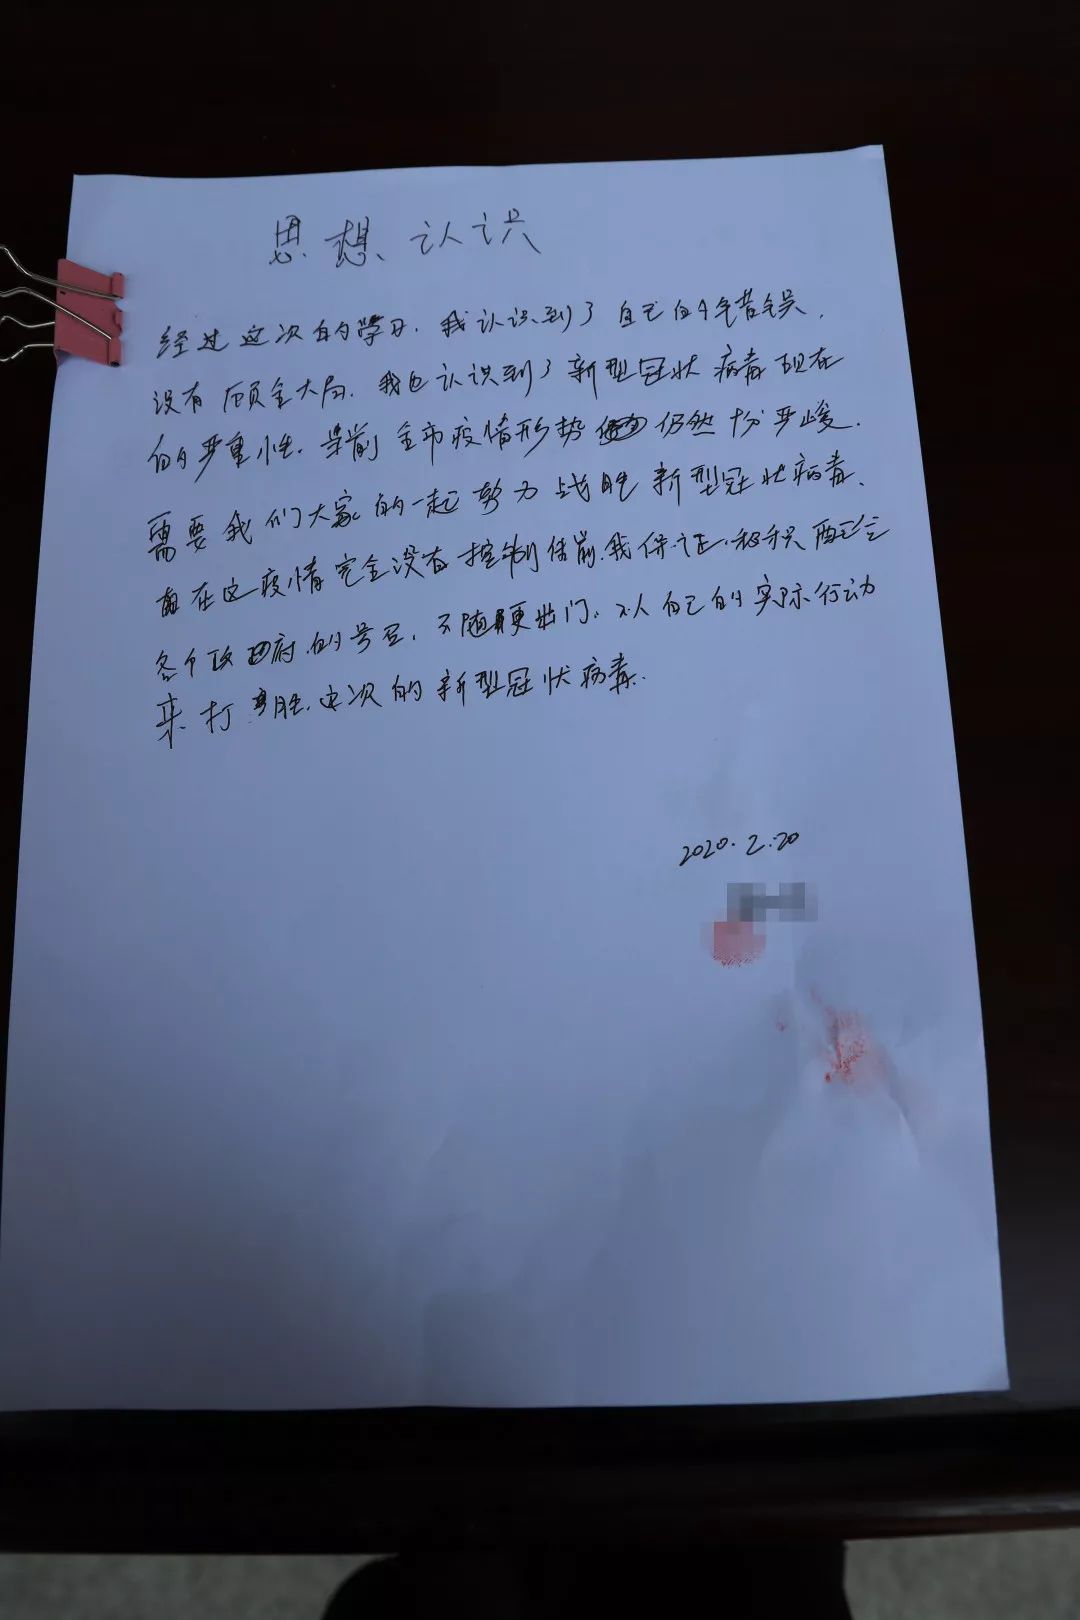 思想认识
经过这次的学习，我认识到了自己的错误，
没有顾全大局，我也认识到了新型冠状病毒现在
的严重性。当前全市疫情形势仍然十分严峻，
需要我们大家的一起努力战胜新型冠状病毒，
在这疫情完全没有控制住前，我保证，积极配合
各个政府的号召，不随便出门，以自己的实际行动
来打胜这次的新型冠状病毒。
2020.2.20